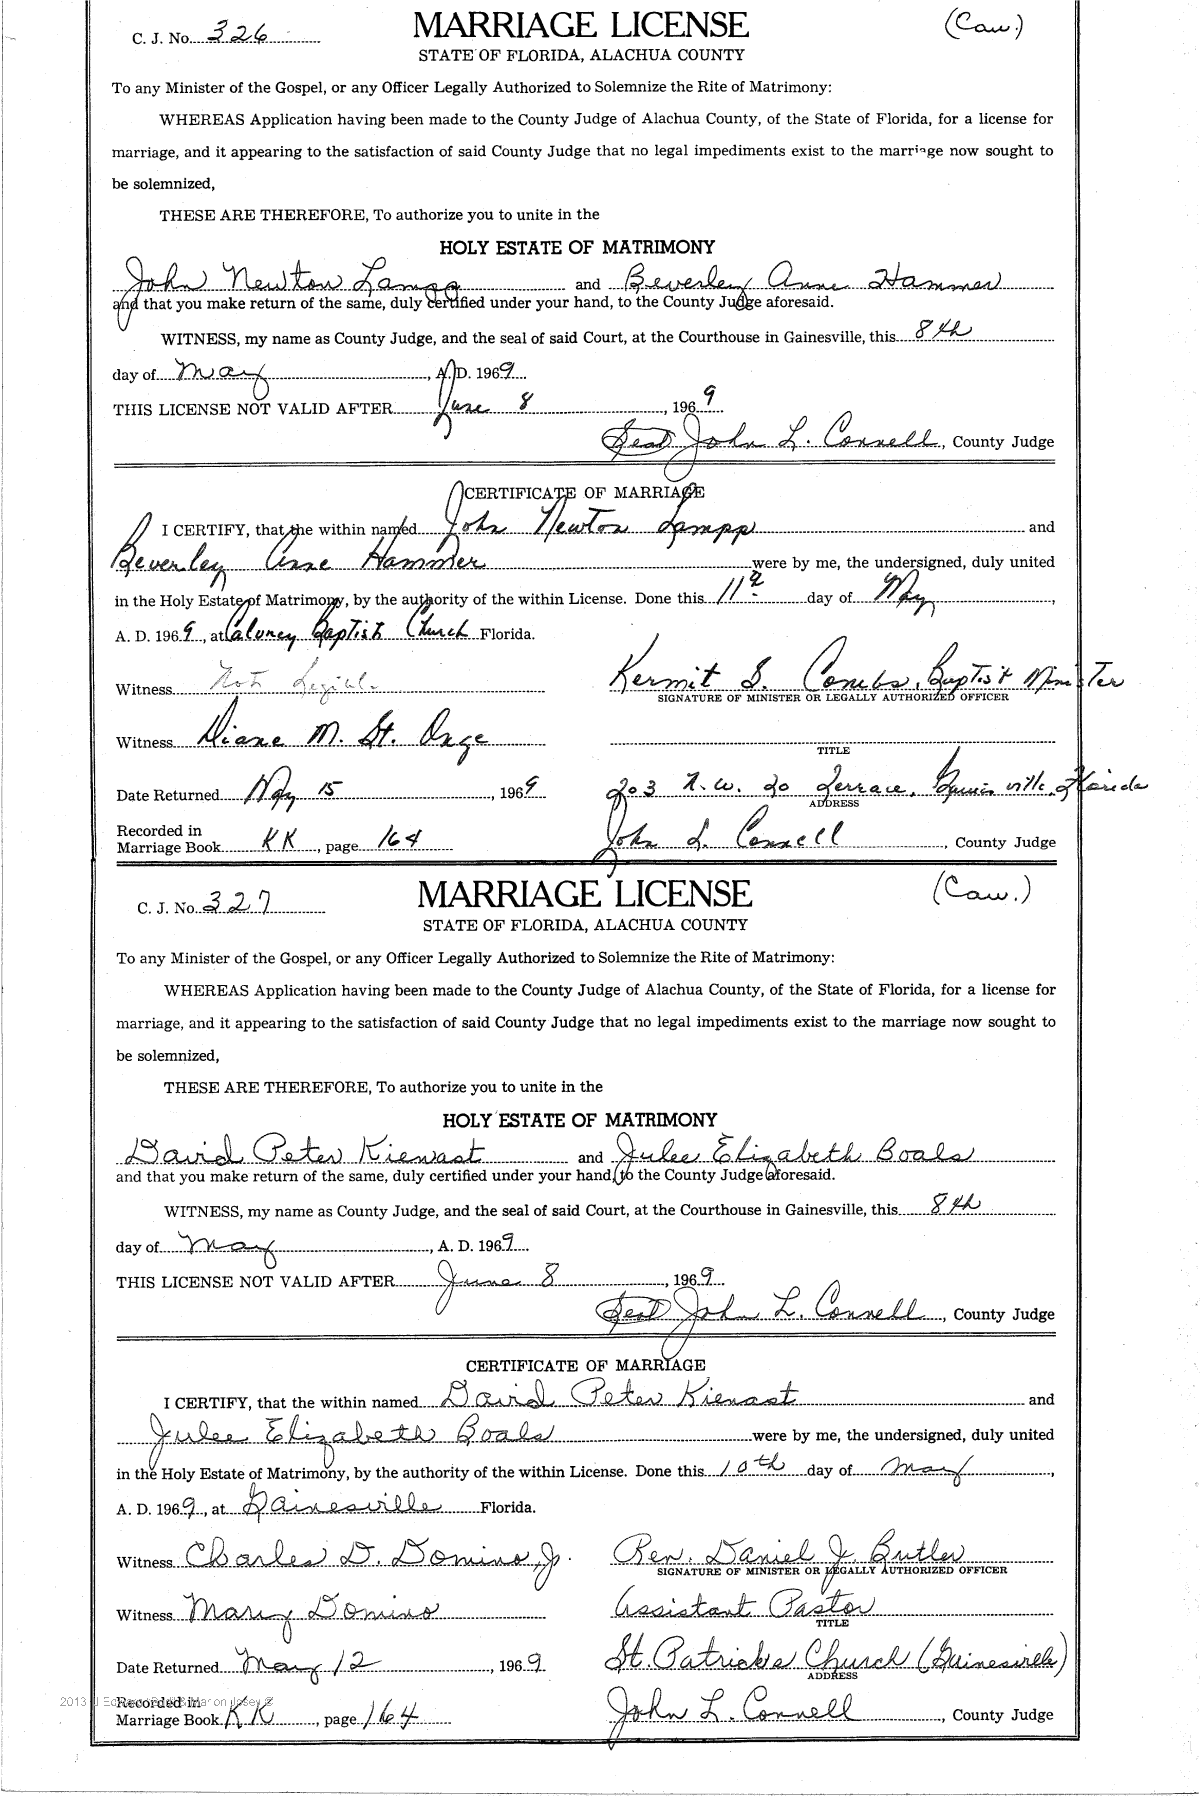 C. J. No. 326 MARRIAGE LICENSE (Caw.)
STATE OF FLORIDA, ALACHUA COUNTY
To any Minister of the Gospel, or any Officer Legally Authorized to Solemnize the Rite of Matrimony:
WHEREAS Application having been made to the County Judge of Alachua County, of the State of Florida, for a license for
marriage, and it appearing to the satisfaction of said County Judge that no legal impediments exist to the marriage now sought to
be solemnized,
THESE ARE THEREFORE, To authorize you to unite in the
HOLY ESTATE OF MATRIMONY
John Newton Lampp and Beverley Anne Hammer
and that you make return of the same, duly certified under your hand, to the County Judge aforesaid.
WITNESS, my name as County Judge, and the seal of said Court, at the Courthouse in Gainesville, this 8th
day of May, A. D. 1969
THIS LICENSE NOT VALID AFTER June 8, 1969
Seal John L. Connell, County Judge
CERTIFICATE OF MARRIAGE
I CERTIFY, that the within named John Newton Lampp and
Beverley Anne Hammer were by me, the undersigned, duly united
in the Holy Estate of Matrimony, by the authority of the within License. Done this 11th day of May,
A. D. 1969, at Calvary Baptist Church Florida.
Witness Not Legible Kermit S. Combs, Baptist Minister
SIGNATURE OF MINISTER OR LEGALLY AUTHORIZED OFFICER
Witness Diane M. St. Onge
TITLE
Date Returned May 15, 1969 203 N.W. 20 Terrace, Gainesville, Florida
ADDRESS
Recorded in
Marriage Book KK, page 164 John L. Connell, County Judge
C. J. No. 327 MARRIAGE LICENSE (Caw.)
STATE OF FLORIDA, ALACHUA COUNTY
To any Minister of the Gospel, or any Officer Legally Authorized to Solemnize the Rite of Matrimony:
WHEREAS Application having been made to the County Judge of Alachua County, of the State of Florida, for a license for
marriage, and it appearing to the satisfaction of said County Judge that no legal impediments exist to the marriage now sought to
be solemnized,
THESE ARE THEREFORE, To authorize you to unite in the
HOLY ESTATE OF MATRIMONY
David Peter Kienast and Julee Elizabeth Boals
and that you make return of the same, duly certified under your hand, to the County Judge aforesaid.
WITNESS, my name as County Judge, and the seal of said Court, at the Courthouse in Gainesville, this 8th
day of May, A. D. 1969
THIS LICENSE NOT VALID AFTER June 8, 1969
Seal John L. Connell, County Judge
CERTIFICATE OF MARRIAGE
I CERTIFY, that the within named David Peter Kienast and
Julee Elizabeth Boals were by me, the undersigned, duly united
in the Holy Estate of Matrimony, by the authority of the within License. Done this 10th day of May,
A. D. 1969, at Gainesville Florida.
Witness Charles D. Domino, Jr. Rev. Daniel J. Butler
SIGNATURE OF MINISTER OR LEGALLY AUTHORIZED OFFICER
Witness Mary Domino Assistant Pastor
TITLE
Date Returned May 12, 1969 St. Patrick's Church (Gainesville)
ADDRESS
2013
Recorded in
Marriage Book KK, page 164 John L. Connell, County Judge